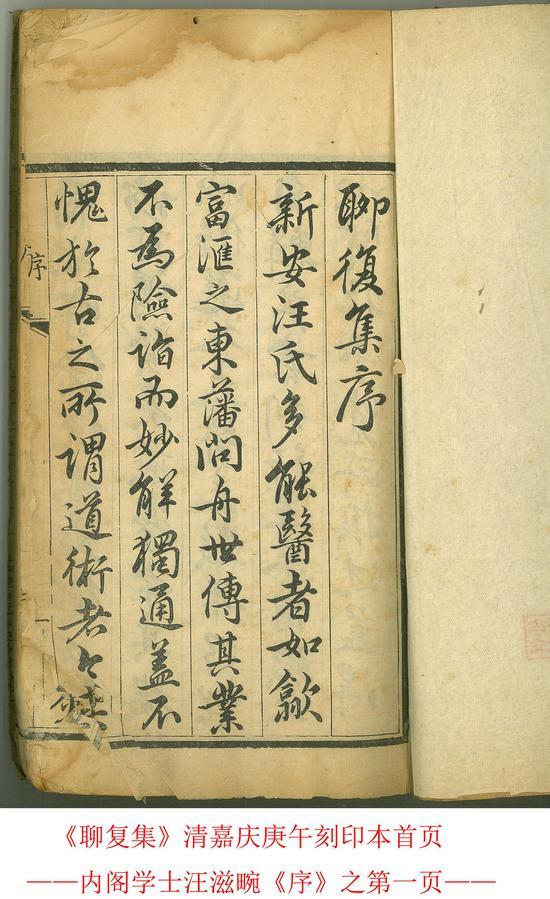 聊復集序
新安汪氏多能醫者如歙
富滙之東藩問舟世傳其業
不為險詣而妙解獨通盖不
愧於古之所謂道術者
序
《聊复集》清嘉庆庚午刻印本首页
——内阁学士汪滋畹《序》之第一页——